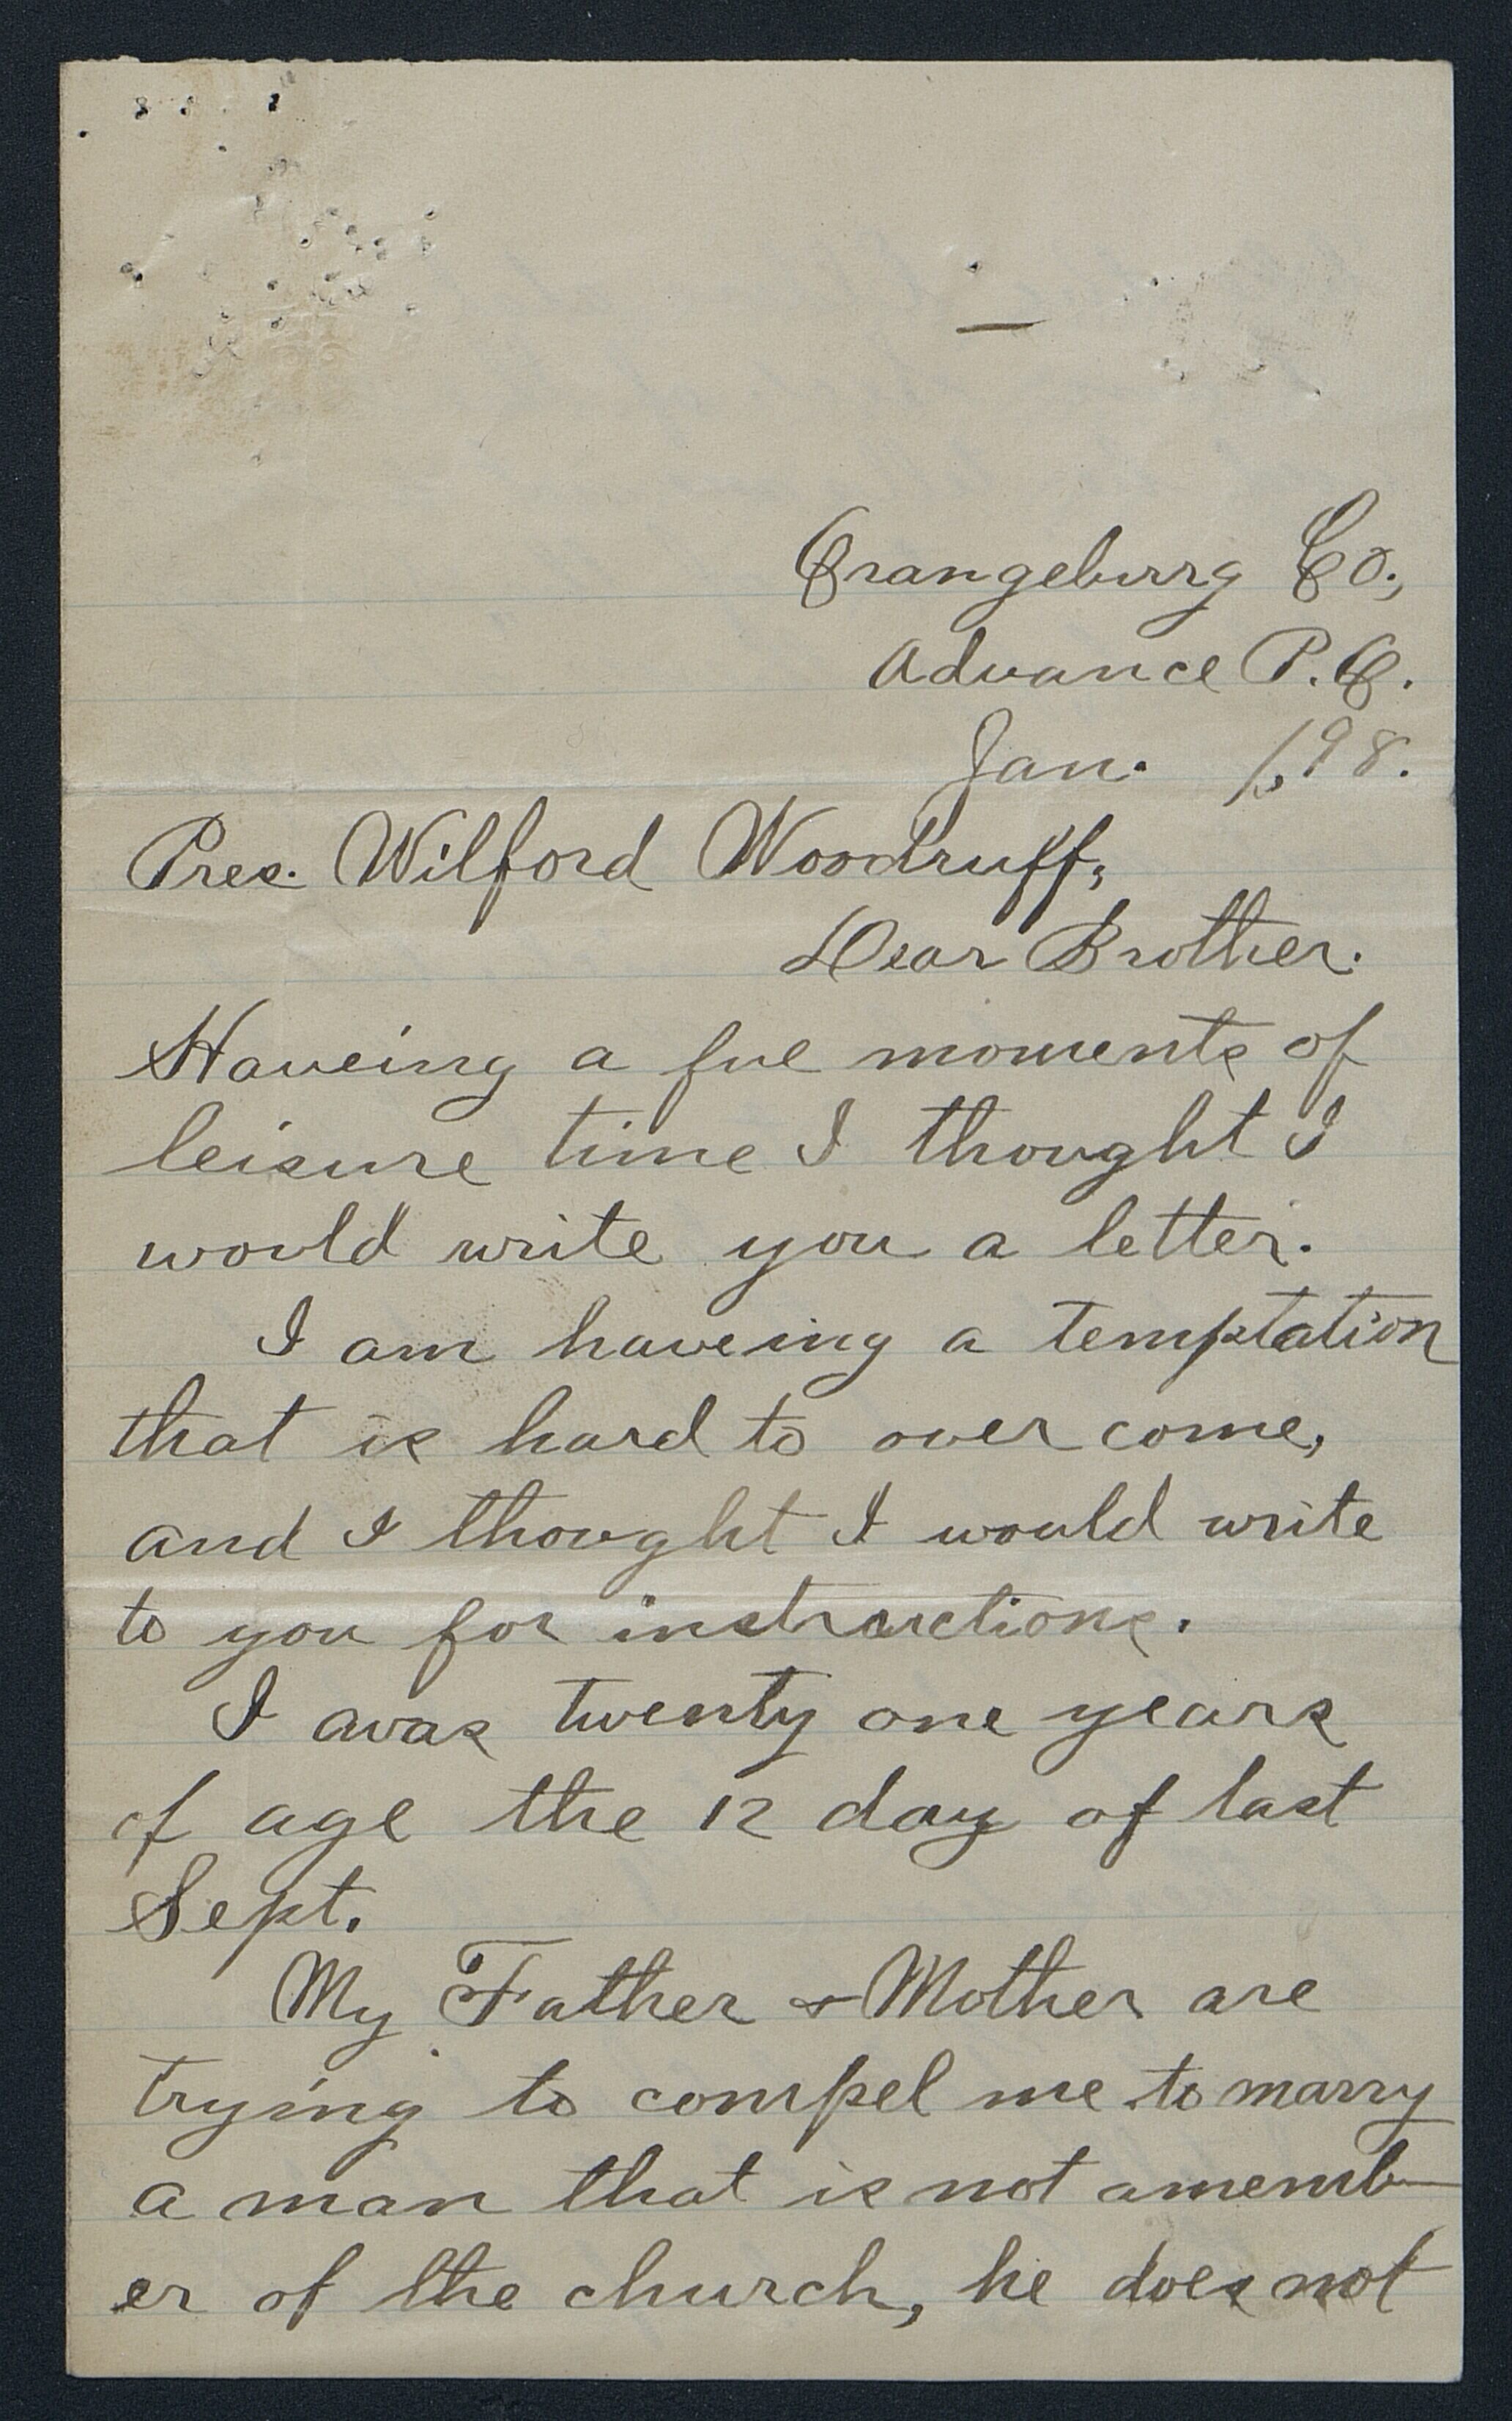 Orangeburg Co.,
Advance P.O.
Jan. 1, 98.
Pres. Wilford Woodruff,
Dear Brother.
Haveing a fue moments of
leisure time I thought I
would write you a letter.
I am haveing a temptation
that is hard to over come,
and I thought I would write
to you for instructions.
I was twenty one years
of age the 12 day of last
Sept.
My Father & Mother are
trying to compel me to marry
a man that is not amemb
er of the church, he does not